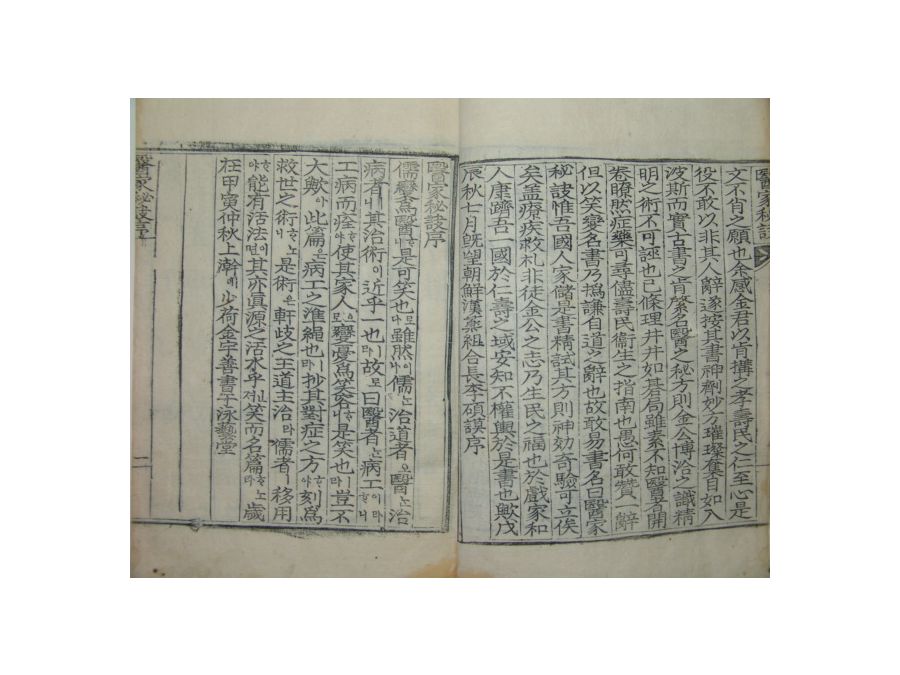 醫家秘訣
文不肖之願也余感金君以肯搆之孝壽民之仁至心是
役不敢以非其人辭遂按其書神劑妙方璀璨奪目如入
波斯而實古書之肯綮名醫之秘方則金公博洽之識精
明之術不可誣也已條理井井如碁局雖素不知醫者開
卷瞭然症藥可尋儘壽民衛生之指南也愚何敢贊 辭
但以笑變名書乃撝謙自道之辭也故敢易書名曰醫家
秘訣惟吾國人家儲是書精試其方則神効奇驗可立俟
矣盖療疾救札非徒金公之志乃生民之福也於戲家和
人康躋吾一國於仁壽之域安知不權輿於是書也歟戊
辰秋七月旣望朝鮮漢藥組合長李碩謨序
醫家秘訣序
儒變爲醫하니是可笑也로다雖然이나儒는治道者오醫는治
病者니其治術이近乎一也라故로曰醫者는病工이라하니
工病而痊하야使其家人으로變憂爲笑容하니是笑也라豈不
大歟아此篇은病工之準繩也라抄其對症之方하야刻爲
救世之術하노니是術은軒歧之王道主治라儒者移用
하야能有活法이면其亦眞源之活水乎져笑而名篇하노라歲
在甲寅仲秋上澣에少荷金宇善書于泳藝堂
醫家秘訣序
一